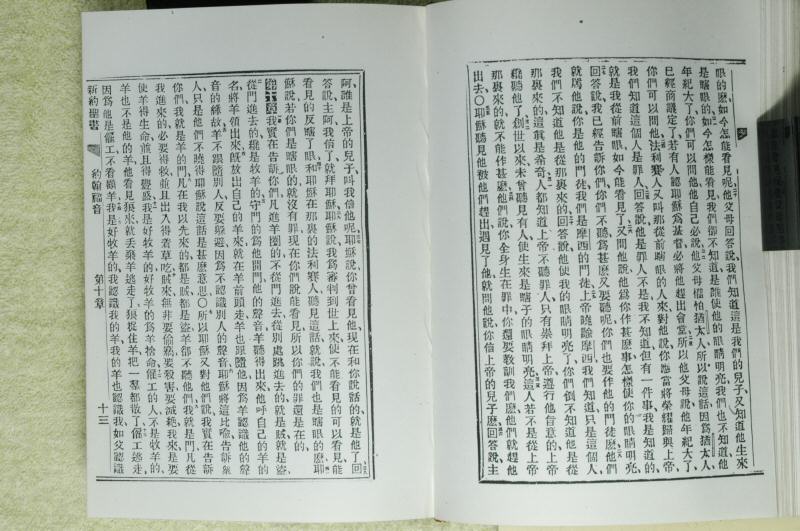 眼的麽如今怎能看見呢他父母回答說我們知道這是我們的兒子又知道他生來
是瞎眼的如今怎樣能看見我們卻不知道是誰使他的眼睛明亮我們也不知道他
年紀大了你們可以問他他自己必能說他父母懼怕猶太人所以說這話因爲猶太人
已經商議定了若有人認耶穌爲基督必將他趕出會堂所以他父母說他年紀大了
你們可以問他法利賽人又叫那從前瞎眼的人來對他說你應當將榮耀歸與上帝
我們知道這個人是罪人回答說他是罪人不是我不知道但有一件事我是知道的
就是我從前瞎眼如今能看見了又問他說他爲你作甚麽事怎樣使你的眼睛明亮
回答說我已經告訴你們你們不聽爲甚麽又要聽呢你們也要作他的門徒麽他們
就罵他說你是他的門徒我們是摩西的門徒上帝曉諭摩西我們知道只是這個人
我們不知道他是從那裏來的回答說他使我的眼睛明亮了你們倒不知道他是從
那裏來的這眞是希奇人都知道上帝不聽罪人只有崇拜上帝遵行他旨意的上帝
纔聽他了創世以來未曾聽見有人使生來是瞎子的眼睛明亮這人若不是從上帝
那裏來的就不能作甚麽他們說你全身生在罪中你還要教訓我們麽他們就趕他
出去〇耶穌聽見他被他們趕出遇見了他就問他說你信上帝的兒子麽回答說主
阿誰是上帝的兒子叫我信他呢耶穌說你曾看見他現在和你說話的就是他了回
答說主阿我信了就拜耶穌耶穌說我爲審判到世上來使不能看見的可以看見能
看見的反瞎了眼和耶穌在那裏的法利賽人聽見這話就說我們也是瞎眼的麽耶
穌說若你們是瞎眼的就沒有罪現在你們說能看見所以你們的罪還是在的
第十章我實在告訴你們凡進羊圈的不從門進去從別處跳進去的就是賊就是盜
從門進去的纔是牧羊的守門的爲他開門他的聲音羊聽得出來他呼自己的羊的
名將羊領出來旣放出自己的羊來就在羊前頭走羊也跟隨他因爲羊認識他的聲
音的緣故羊不跟隨別人反要躲避因爲不認識別人的聲音耶穌將這比喩告訴衆
人只是他們不曉得耶穌說這話是甚麽意思〇所以耶穌又對他們說我實在告訴
你們我就是羊的門凡在我以先來的都是賊都是盜羊卻不聽他們我就是門凡從
我進來的必要得救並且出入得着草吃賊來無非要偷竊要殺害要滅絕我來是要
使羊得生命並且得豐盛我是好牧羊的好牧羊的爲羊捨命僱工的人不是牧羊的
羊也不是他的羊他看見狼來就丟棄羊逃走了狼捉住羊把一羣都散了僱工逃走
因爲他是僱工不看顧羊我是好牧羊的我認識我的羊我的羊也認識我如父認識
新約聖書 約翰福音 第十章 十三